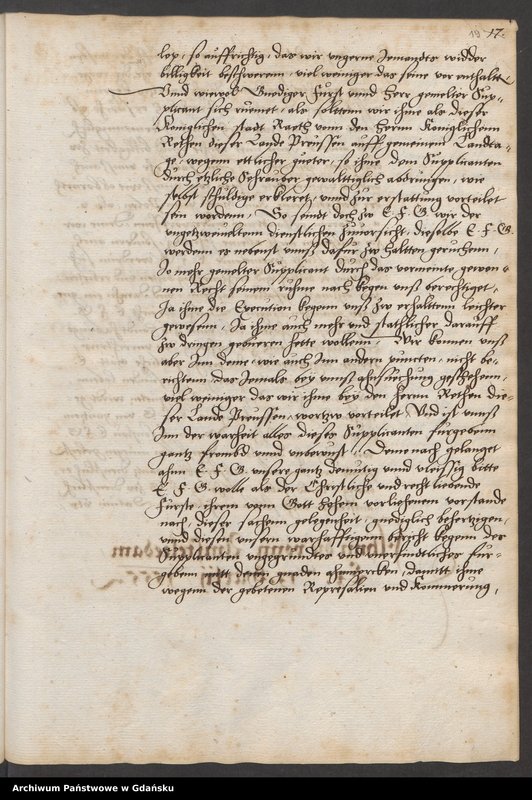 19 17.
ley, so auffrichtig, das wir ungerne Jemandts widder
billigkeit beschwerenn, viel weniger das seine vor enthaltē
Unnd wiewol Gnediger Fürst unnd Herr gemelter Sup-
plicant sich rümet, als solttenn wir ihme als dieser
Königlichen stadt Rath vonn den Herrn Königlichenn
Rethen dieser Lande Preussen auff gemeinem Landta-
ge, wegenn ettlicher guetter, so ihme dem Supplicanten
durch etzliche gewalttiglich abdrungen, wie
selbst schuldige erkleret, unnd zur erstattung vorteilet
sein wordenn, So seindt doch zw E. F. G. wir der
ungetzweiueltenn dienstlichen zuuorsicht, dieselbe E. F. G.
werdenn es nebenst unnß dafur zw haltten geruchenn,
So mehr gemelter Supplicant durch das vormeinte gewon-
nen Recht seinem rühme nach kegen unß berechtiget,
Ja ihme die Execution kegenn unß zw erhaltenn leichter
gewesenn, Ja ihme auch mehr und stathlicher darauff
zw dringen gebueren hette wollenn, Wir konnen unß
aber Inn deme, wie auch Inn andern puncten, nicht be-
richtenn, das Jemals bey unnß ansuchung geschehenn,
viel weiniger das wir ihme bey den Herrn Rethen die-
ser Lande Preussen, wortzw vorteilet, Und ist unnß
Inn der warheit alles dieses Supplicanten fürgebenn
gantz frembd unnd unbewust, Deme nach gelanget
ahnn E. F. G. unsere gantz demutig unnd vleissig bitte
E. F. G. wolle als der Christliche und recht liebende
Fürste, ihrem vonn Gott hohem vorliehenem vorstande
nach, dieser sachenn gelegenheit, gnediglich behertzigen,
unnd diesen unsern warhafftigenn bericht kegenn des
Supplicanten ungegrundtes und unerfindtliches für-
gebenn, mitt denn gnaden ahnmercken, damitt ihme
wegenn der gebetenen Represalien und Kommerung,
Archiwum Państwowe w Gdańsku